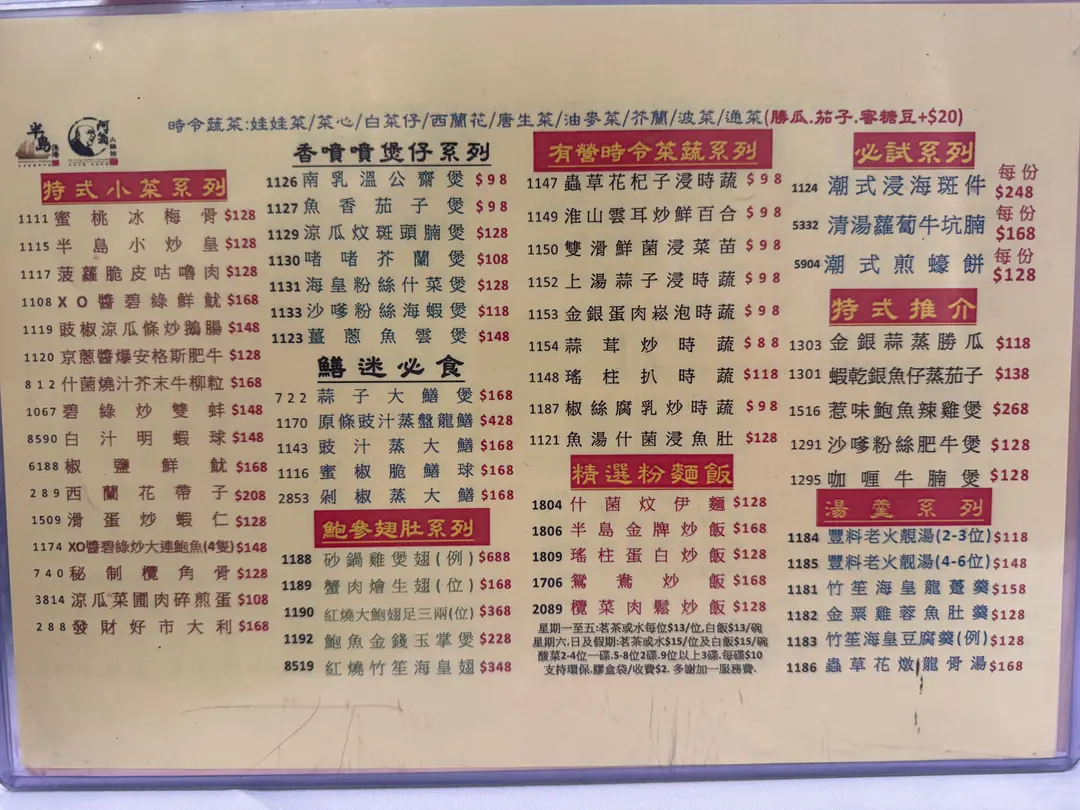 半島
漁港
阿翁
火鍋館
時令蔬菜:娃娃菜/菜心/白菜仔/西蘭花/唐生菜/油麥菜/芥蘭/波菜/通菜(勝瓜.茄子.蜜糖豆+$20)
特式小菜系列
1111 蜜桃冰梅骨 $128
1115 半島小炒皇 $128
1117 菠蘿脆皮咕嚕肉 $128
1108 XO醬碧綠鮮魷 $168
1119 豉椒涼瓜條炒鵝腸 $148
1120 京蔥醬爆安格斯肥牛 $128
812 什菌燒汁芥末牛柳粒 $168
1067 碧綠炒雙蚌 $148
8590 白汁明蝦球 $148
6188 椒鹽鮮魷 $168
289 西蘭花帶子 $208
1509 滑蛋炒蝦仁 $128
1174 XO醬碧綠炒大連鮑魚(4隻) $148
740 秘制欖角骨 $128
3814 涼瓜菜圃肉碎煎蛋 $108
288 發財好市大利 $168
香噴噴煲仔系列
1126 南乳溫公齋煲 $98
1127 魚香茄子煲 $98
1129 涼瓜炆斑頭腩煲 $128
1130 啫啫芥蘭煲 $108
1131 海皇粉絲什菜煲 $128
1133 沙嗲粉絲海蝦煲 $118
1123 薑蔥魚雲煲 $148
鱔迷必食
722 蒜子大鱔煲 $168
1170 原條豉汁蒸盤龍鱔 $428
1143 豉汁蒸大鱔 $168
1116 蜜椒脆鱔球 $168
2853 剁椒蒸大鱔 $168
鮑參翅肚系列
1188 砂鍋雞煲翅(例) $688
1189 蟹肉燴生翅(位) $168
1190 紅燒大鮑翅足三兩(位) $368
1192 鮑魚金錢玉掌煲 $228
8519 紅燒竹笙海皇翅 $348
有營時令菜蔬系列
1147 蟲草花杞子浸時蔬 $98
1149 淮山雲耳炒鮮百合 $98
1150 雙滑鮮菌浸菜苗 $98
1152 上湯蒜子浸時蔬 $98
1153 金銀蛋肉崧泡時蔬 $98
1154 蒜茸炒時蔬 $88
1148 瑤柱扒時蔬 $118
1187 椒絲腐乳炒時蔬 $98
1121 魚湯什菌浸魚肚 $128
精選粉麵飯
1804 什菌炆伊麵 $128
1806 半島金牌炒飯 $168
1809 瑤柱蛋白炒飯 $128
1706 鴛鴦炒飯 $168
2089 欖菜肉鬆炒飯 $128
星期一至五:茗茶或水每位$13/位,白飯$13/碗
星期六.日及假期:茗茶或水$15/位及白飯$15/碗
酸菜2-4位一碟.5-8位2碟.9位以上3碟.每碟$10
支持環保.膠盒袋/收費$2. 多謝加一服務費.
必試系列
1124 潮式浸海斑件 每份 $248
5332 清湯蘿蔔牛坑腩 每份 $168
5904 潮式煎蠔餅 每份 $128
特式推介
1303 金銀蒜蒸勝瓜 $118
1301 蝦乾銀魚仔蒸茄子 $138
1516 惹味鮑魚辣雞煲 $268
1291 沙嗲粉絲肥牛煲 $128
1295 咖喱牛腩煲 $128
湯羹系列
1184 豐料老火靚湯(2-3位) $118
1185 豐料老火靚湯(4-6位) $148
1181 竹笙海皇龍躉羹 $158
1182 金粟雞蓉魚肚羹 $128
1183 竹笙海皇豆腐羹(例) $128
1186 蟲草花燉龍骨湯 $168